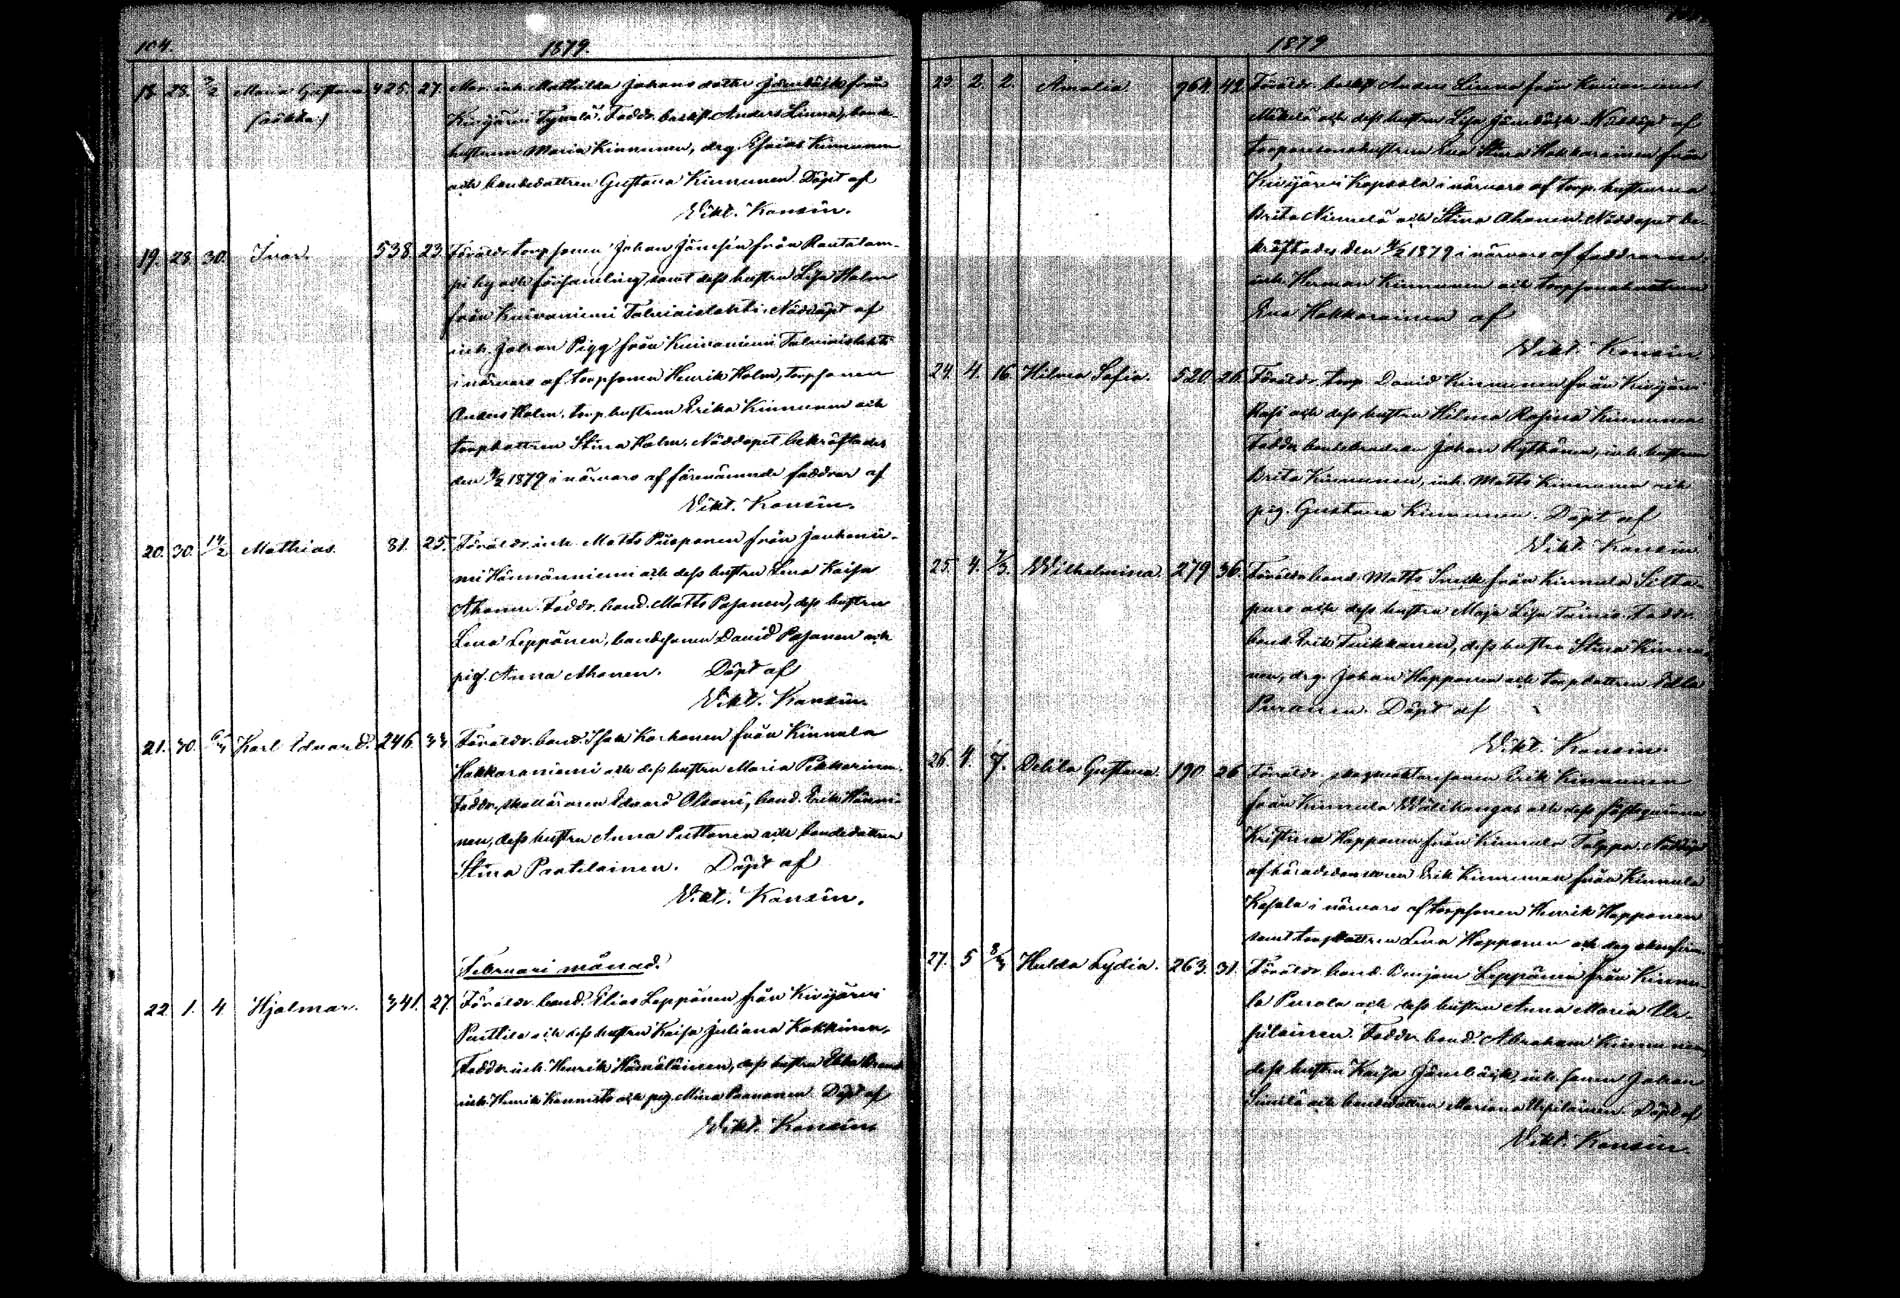 104.
1879.
18. 28. 2/2 Maria Gustava 425. 27. Mor. inh. Mathilda Johansdotter Jernbäck från
(oäkta) Kivijärvi Faddr. backst. Anders Linna, bonde-
hustrun Maria Kinnunen, drg. Esaias Kinnunen
och bondedottren Gustava Kinnunen. Döpt af
Vikt. Konsin.
19. 28. 30. Ivar. 538. 23. Föräldr. torpsonen Johan Jönssin från Rautalam-
pi by och församling samt dess hustru Lisa Holm
från Kuivaniemi Talviaislahti. Nöddöpt af
inh. Johan Pigg från Kuivaniemi Talviaislahti
i närvaro af torpsonen Henrik Holm, torpsonen
Anders Holm, torp.hustrun Erika Kinnunen och
torpdottren Stina Holm. Nöddopet bekräftades
den 4/2 1879 i närvaro af förenämnde faddrar af
Vikt. Konsin.
20. 30. 14/2 Mathias. 81. 25. Föräldr. inh. Matts Piispanen från Jonkenie-
mi Hännänniemi och dess hustru Lena Kaisa
Ahonen. Faddr. bond. Matts Pasanen, dess hustru
Lena Leppänen, bondsonen David Pasanen och
pig. Anna Ahonen. Döpt af
Vikt. Konsin.
21. 30. 6/3 Karl Edvard. 246. 33 Föräldr. bond. Isak Korhonen från Kinnula
Hakkaraniemi och dess hustru Maria Pekkarinen.
Faddr. skolläraren Edvard Alsoni, bond. Erik Hänni-
nen, dess hustru Anna Puttonen och bondedottren
Stina Paatelainen. Döpt af
Vikt. Konsin.
Februari månad.
22. 1. 4 Hjalmar. 341. 27. Föräldr. bond. Elias Leppänen från Kivijärvi
Penttilä och dess hustru Kaisa Juliana Kokkinen.
Faddr. inh. Henrik Hämäläinen, dess hustru Ebba
inh. Henrik Kannisto och pig. Mina Paananen. Döpt af
Vikt. Konsin
1879
23. 2. 2. Amalia 964. 42. Föräldr. backst. Anders Linna från
Mäkelä och dess hustru Lisa Jernbäck. Nöddöpt af
Eva Stina Hakkarainen från
Kivijärvi i närvaro af torp.hustrurna
Brita Niemelä och Stina Ahonen. Nöddopet be-
kräftades den 4/2 1879 i närvaro af faddrarne
inh. Herman Kinnunen och
Eva Hakkarainen af
Vikt. Konsin
24. 4. 16. Hilma Sofia. 520. 26. Föräldr. torp. David Kinnunen från Kivijärvi
och dess hustru Hilma Rosina Kinnunen
Faddr. Johan Kytkänen, inh. hustrun
Brita Kinnunen, inh. Matts Kinnunen och
pig. Gustava Kinnunen. Döpt af
Vikt. Konsin.
25. 4. 7/3. Wilhelmina. 279 36. Föräldr. bond. Matts från Kinnula Silta-
puro och dess hustru Maja Lisa Tainio. Faddr.
bond. Erik Turkkanen, dess hustru Stina Kinnu-
nen, drg. Johan Happonen och torpdottren Adla
Puranen. Döpt af
Vikt. Konsin.
26. 4. 7. Delila Gustava. 190 26 Föräldr. skogvaktaresonen Erik Kinnunen
från Kinnula Wälikangas och dess fästeqvinna
Kristina Happonen från Kinnula Nöddöpt
af häradsdomaren Erik Kinnunen från Kinnula
i närvaro af torpsonen Henrik Happonen
samt torpdottren Lena Happonen och
27. 5 8/3 Hulda Lydia. 263. 31. Föräldr. bond. Benjam Leppänen från Kinnu-
la Perola och dess hustru Anna Maria Ur-
pilainen. Faddr. bond. Abraham Kinnunen,
dess hustru Kaisa Jernbäck, inh. sonen Johan
Similä och bondedottren Mariana Urpilainen. Döpt af
Vikt. Konsin.